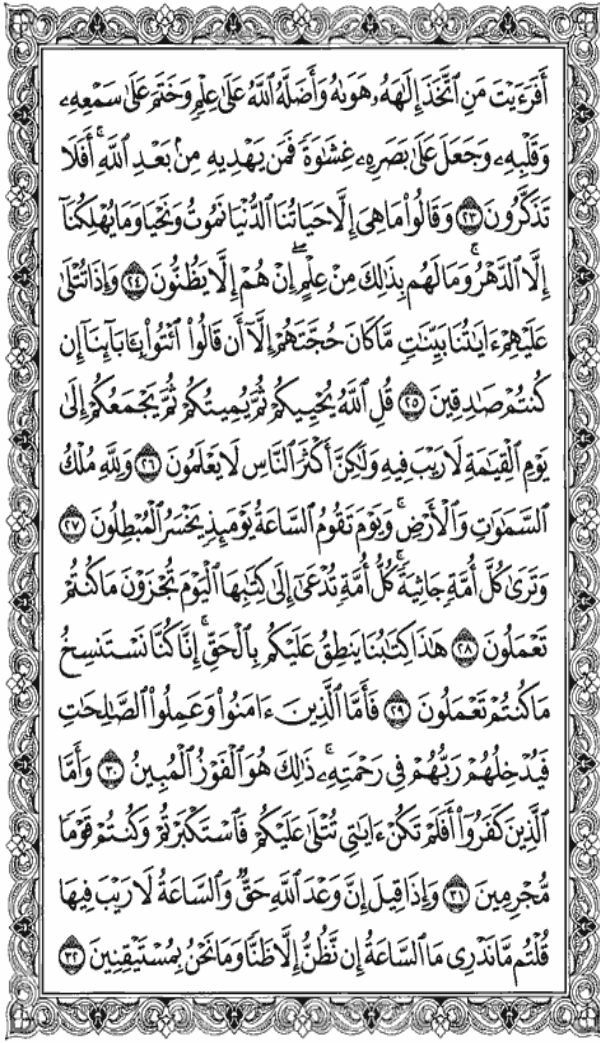 أَفَرَءَيْتَ مَنِ ٱتَّخَذَ إِلَٰهَهُۥ هَوَىٰهُ وَأَضَلَّهُ ٱللَّهُ عَلَىٰ عِلْمٍ وَخَتَمَ عَلَىٰ سَمْعِهِۦ
وَقَلْبِهِۦ وَجَعَلَ عَلَىٰ بَصَرِهِۦ غِشَٰوَةً فَمَن يَهْدِيهِ مِنۢ بَعْدِ ٱللَّهِ ۚ أَفَلَا
تَذَكَّرُونَ ٢٣ وَقَالُوا۟ مَا هِىَ إِلَّا حَيَاتُنَا ٱلدُّنْيَا نَمُوتُ وَنَحْيَا وَمَا يُهْلِكُنَآ
إِلَّا ٱلدَّهْرُ ۚ وَمَا لَهُم بِذَٰلِكَ مِنْ عِلْمٍ ۖ إِنْ هُمْ إِلَّا يَظُنُّونَ ٢٤ وَإِذَا تُتْلَىٰ
عَلَيْهِمْ ءَايَٰتُنَا بَيِّنَٰتٍ مَّا كَانَ حُجَّتَهُمْ إِلَّآ أَن قَالُوا۟ ٱئْتُوا۟ بِـَٔابَآئِنَآ إِن
كُنتُمْ صَٰدِقِينَ ٢٥ قُلِ ٱللَّهُ يُحْيِيكُمْ ثُمَّ يُمِيتُكُمْ ثُمَّ يَجْمَعُكُمْ إِلَىٰ
يَوْمِ ٱلْقِيَٰمَةِ لَا رَيْبَ فِيهِ وَلَٰكِنَّ أَكْثَرَ ٱلنَّاسِ لَا يَعْلَمُونَ ٢٦ وَلِلَّهِ مُلْكُ
ٱلسَّمَٰوَٰتِ وَٱلْأَرْضِ ۚ وَيَوْمَ تَقُومُ ٱلسَّاعَةُ يَوْمَئِذٍ يَخْسَرُ ٱلْمُبْطِلُونَ ٢٧
وَتَرَىٰ كُلَّ أُمَّةٍ جَاثِيَةً ۚ كُلُّ أُمَّةٍ تُدْعَىٰٓ إِلَىٰ كِتَٰبِهَا ٱلْيَوْمَ تُجْزَوْنَ مَا كُنتُمْ
تَعْمَلُونَ ٢٨ هَٰذَا كِتَٰبُنَا يَنطِقُ عَلَيْكُم بِٱلْحَقِّ ۚ إِنَّا كُنَّا نَسْتَنسِخُ
مَا كُنتُمْ تَعْمَلُونَ ٢٩ فَأَمَّا ٱلَّذِينَ ءَامَنُوا۟ وَعَمِلُوا۟ ٱلصَّٰلِحَٰتِ
فَيُدْخِلُهُمْ رَبُّهُمْ فِى رَحْمَتِهِۦ ۚ ذَٰلِكَ هُوَ ٱلْفَوْزُ ٱلْمُبِينُ ٣٠ وَأَمَّا
ٱلَّذِينَ كَفَرُوٓا۟ أَفَلَمْ تَكُنْ ءَايَٰتِى تُتْلَىٰ عَلَيْكُمْ فَٱسْتَكْبَرْتُمْ وَكُنتُمْ قَوْمًا
مُّجْرِمِينَ ٣١ وَإِذَا قِيلَ إِنَّ وَعْدَ ٱللَّهِ حَقٌّ وَٱلسَّاعَةُ لَا رَيْبَ فِيهَا
قُلْتُم مَّا نَدْرِى مَا ٱلسَّاعَةُ إِن نَّظُنُّ إِلَّا ظَنًّا وَمَا نَحْنُ بِمُسْتَيْقِنِينَ ٣٢